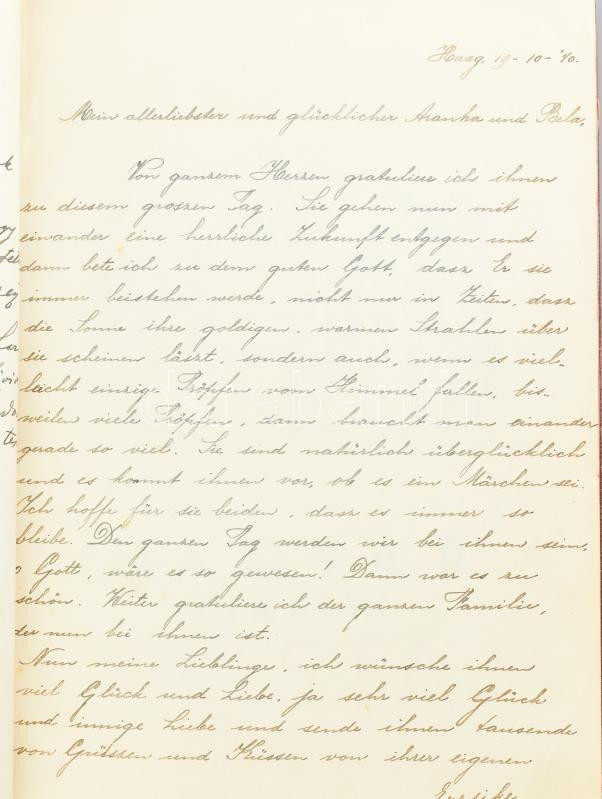 Haag, 19-10-'40.
Mein allerliebster und glücklicher Aranka und Bela,
Von ganzem Herzen gratuliere ich ihnen
zu diesem groszen Tag. Sie gehen nun mit
einander eine herrliche Zukunft entgegen und
dann bete ich zu dem guten Gott, dasz Er sie
immer beistehen werde, nicht nur in Zeiten, dasz
die Sonne ihre goldigen, warmen Strahlen über
sie scheinen läszt, sondern auch, wenn es viel-
leicht einzige Tröpfen vom Himmel fallen, bis-
weilen viele Tröpfen, dann braucht man einander
gerade so viel. Sie sind natürlich überglücklich
und es kommt ihnen vor, ob es ein Märchen sei.
Ich hoffe für sie beiden, dasz es immer so
bleibe. Den ganzen Tag werden wir bei ihnen sein,
o Gott, wäre es so gewesen! Dann war es zu
schön. Weiter gratuliere ich der ganzen Familie,
der nun bei ihnen ist.
Nun meine Lieblinge, ich wünsche ihnen
viel Glück und Liebe, ja sehr viel Glück
und innige Liebe und sende ihnen tausende
von Grüszen und Küssen von ihrer eigenen
darabanth